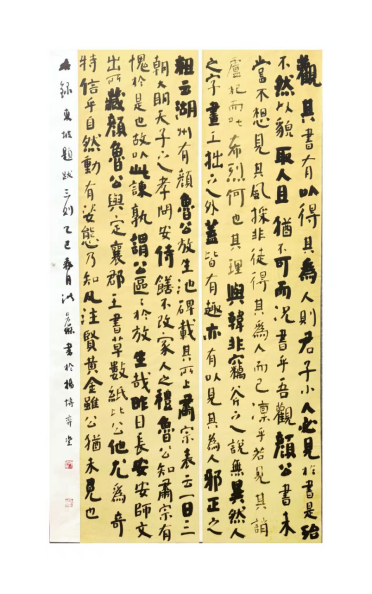 觀其書有以得其為人則君子小人必見於書是殆
不然以貌取人且猶不可而況書乎吾觀顏公書未
嘗不想見其風採非徒得其為人而已凜乎若見其誚
盧杞而叱希烈何也其理與韓非竊斧之說無異然人
之字畫工拙之外蓋皆有趣亦有以見其為人邪正之
粗云湖州有顏魯公放生池碑載其所上肅宗表云一日三
朝大明天子之孝問安侍饍不改家人之禮魯公知肅宗有
愧於是也故以此諫孰謂公區々於放生哉昨日長安安師文
出所藏顏魯公與定襄郡王書草數紙比公他尤為奇
特信乎自然動有姿態乃知瓦注賢黃金雖公猶未免也
錄東坡題跋三則乙巳秋月 書於 堂